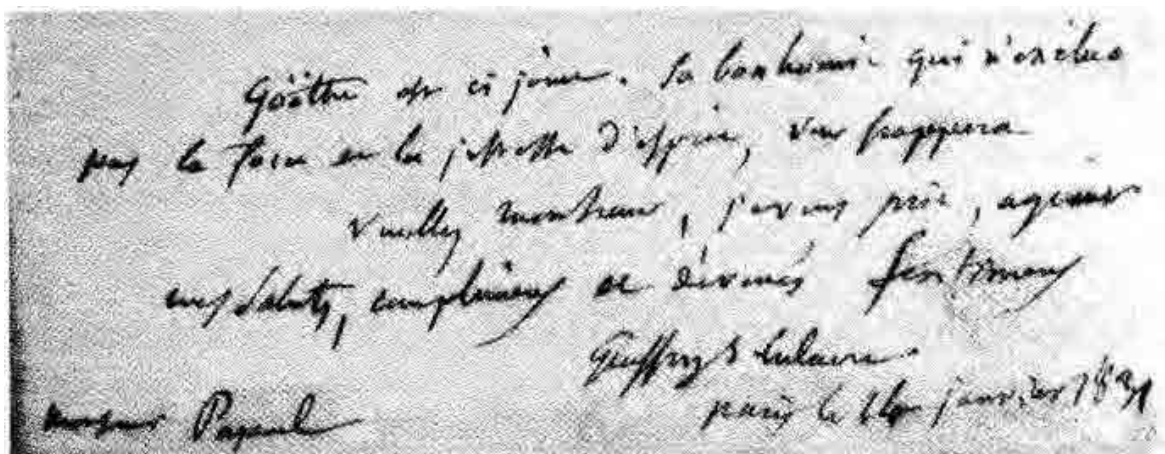 Göethe est ci joint. Sa bonhomie qui n'exclue
pas la force et la justesse d'esprit, vous frappera
Veuillez monsieur, je vous prie, agréer
mes saluts, complimens et dévoués sentimens
Geoffroy St hilaire
paris le janvier 1831
monsieur